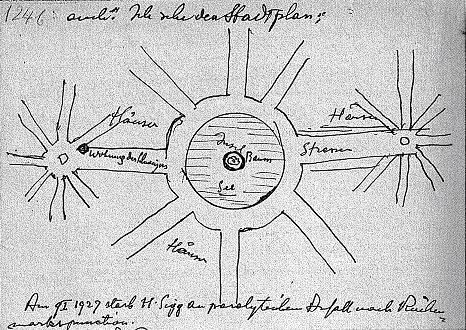 1246. auch: Ich sehe den Stadtplan:
Häuser
Häuser
Wohnung des Übrigens
Insel
Baum
Strassen
See
Häuser
Am 9 I 1927 starb H. Sigg an paralytischem Anfall nach Rücken-
markspunction.